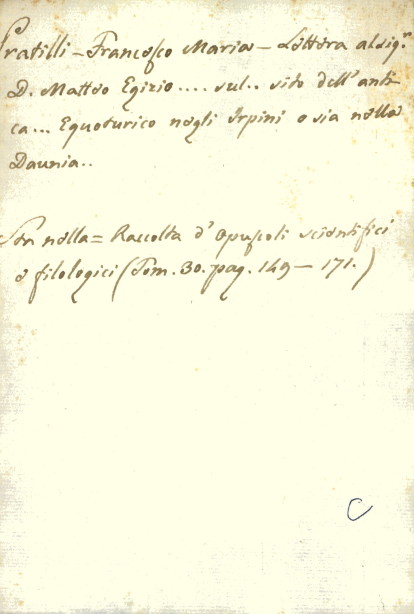 Pratilli - Francesco Maria - Lettera al sig.r
D. Matteo Egizio .... sul.. sito dell'anti-
ca... Equoturico negli Irpini o sia nella
Daunia..
nella = Raccolta d'Opuscoli scientifici
e filologici (Tom. 30. pag. 149 - 171.)
C